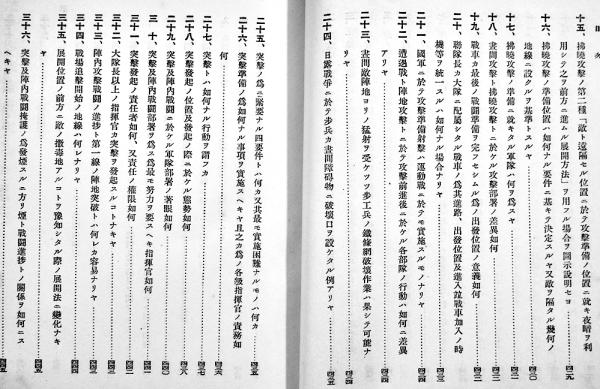 目次
十五、拂曉攻擊ノ第二種「敵ト遠隔セル位置ニ於テ攻擊準備ノ位置ニ就キ夜暗ヲ利
用シ之ヲ前方ニ進ムル展開方法」ヲ用フル場合ヲ圖示說明セヨ
十六、拂曉攻擊ノ準備位置ハ如何ナル要件ニ基キテ決定スルヤ又敵ヲ隔タル幾何ノ
地線ニ設クルヲ基準トスルヤ
十七、拂曉攻擊ノ準備ニ就キタル軍隊ハ何ヲ爲スヤ
十八、晝間攻擊ト拂曉攻擊トニ於ケル攻擊部署ノ差異如何
十九、戰車力最後ノ戰鬪準備ヲ完フセシムル爲ノ出發位置ノ意義如何
二十、聯隊長カ大隊ニ配屬シタル戰車ノ爲其進路、出發位置及進入竝戰車加入ノ時
機等ヲ統一スルハ如何ナル場合ナリヤ
二十一、國軍ニ於テ攻擊準備射擊ハ運動戰ニ於テモ實施スルモノナリヤ
二十二、遭遇戰ト陣地攻擊トニ於テ攻擊前進後ニ於ケル各部隊ノ行動ハ如何ニ差異
アリヤ
二十三、晝間敵陣地ヨリノ猛射ヲ受ケツツ步工兵ノ鐵條網破壞作業ハ果シテ可能ナ
リヤ
二十四、日露戰爭ニ於テ步兵カ晝間障碍物ニ破壞口ヲ設ケタル例アリヤ
二十五、突擊ノ爲ニ緊要ナル四要件トハ何カ又其最モ實施困難ナルモノハ何カ
二十六、突擊準備ノ爲如何ナル事項ヲ實施スヘキヤ且之カ爲ノ各級指揮官ノ責務如
何
二十七、突擊トハ如何ナル行動ヲ謂フカ
二十八、突擊發起ノ位置及發起ノ際ニ於ケル態勢如何
二十九、突擊及陣內戰鬪ニ於ケル軍隊部署ノ著眼如何
三十、突擊及陣內戰鬪部署ヲ爲ス爲最モ努力ヲ要スヘキ指揮官如何
三十一、突擊發起ノ責任者如何、又責任ノ權限如何
三十二、大隊長以上ノ指揮官カ突擊ヲ發起スルコトナキヤ
三十三、陣內攻擊戰鬪ノ進捗ト第一線ノ陣地突破トハ何レカ容易ナリヤ
三十四、戰場追擊開始ノ地線ハ何レナリヤ
三十五、展開位置ノ前方ニ敵ノ撒毒地アルコトヲ豫知シタル際ノ展開法ニ變化ナキ
ヤ
三十六、突擊及陣內戰鬪掩護ノ爲發煙スルニ方リ煙ト戰鬪進捗トノ關係ヲ如何ニス
ヘキヤ